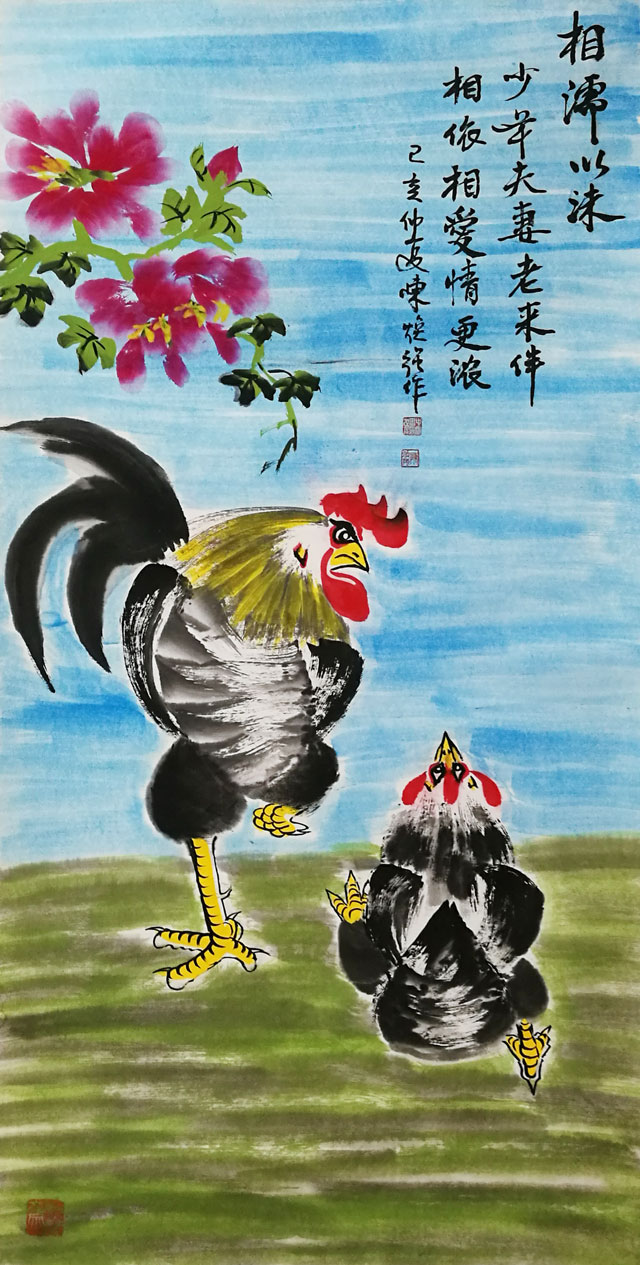 相濡以沫
少年夫妻老来伴
相依相愛情更浓
己亥仲夏陳焕强作